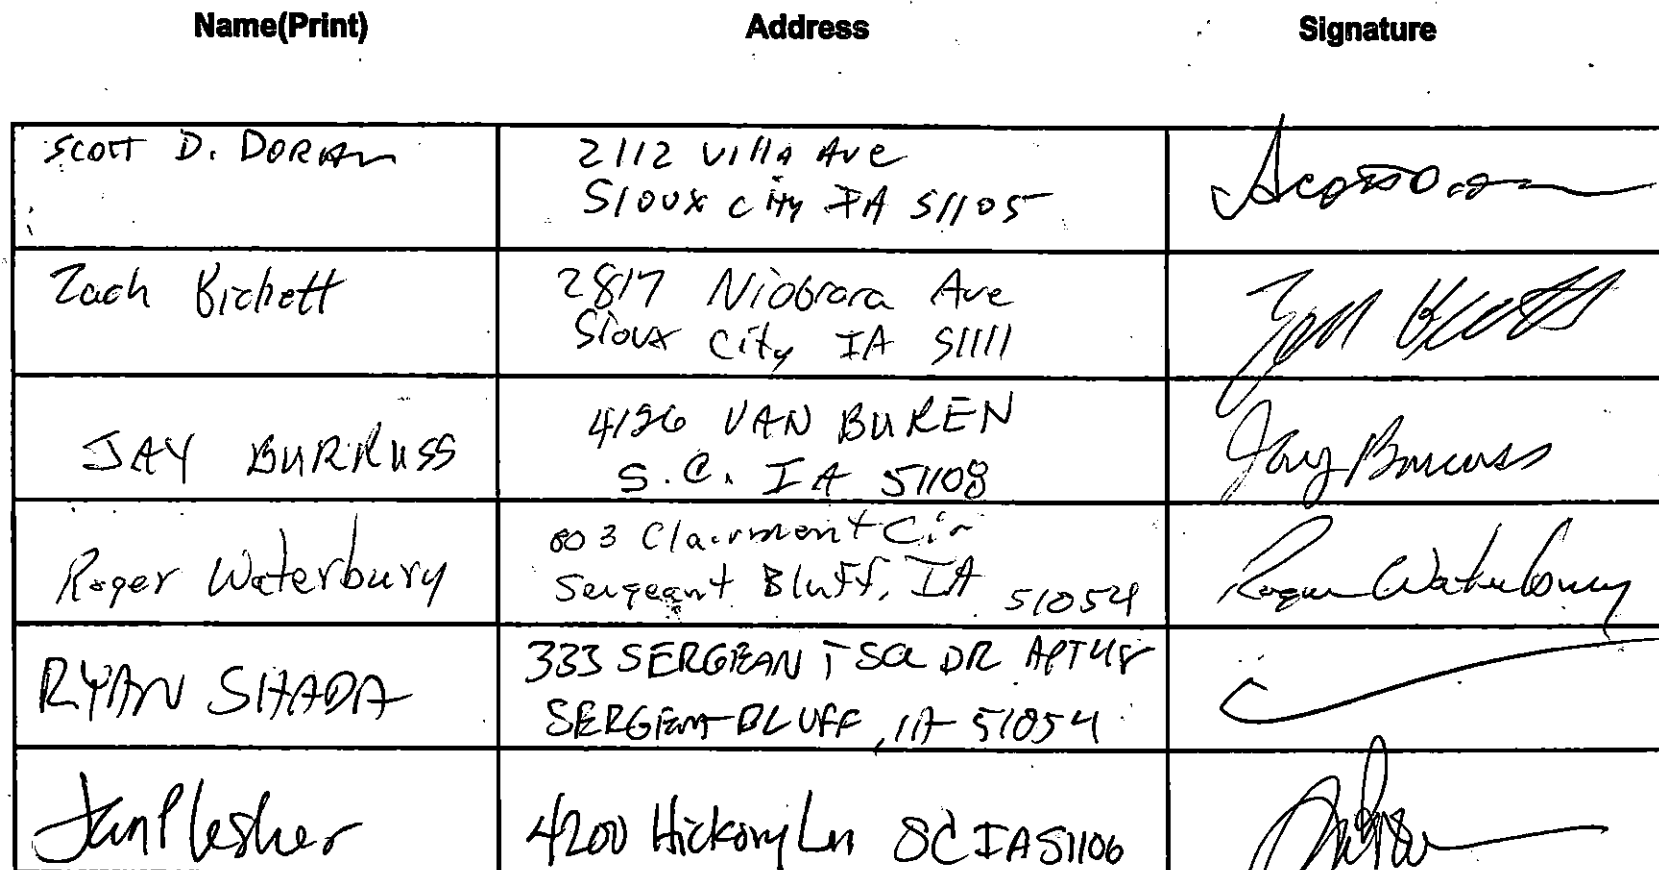 Name(Print) Address Signature
Scott D. Doran 2112 Villa Ave
Sioux City IA 51105
Zach Bickett 2817 Niobrara Ave
Sioux City IA 51111
JAY BURRUSS 4126 VAN BUREN
S.C. IA 51108 Jay Burruss
Roger Waterbury 803 Clairmont Cir
Sergeant Bluff, IA 51054 Roger Waterbury
RYAN SHADA 333 SERGEANT SQ DR APT
SERGEANT BLUFF, IA 51054
4200 Hickory Ln SC IA 51106